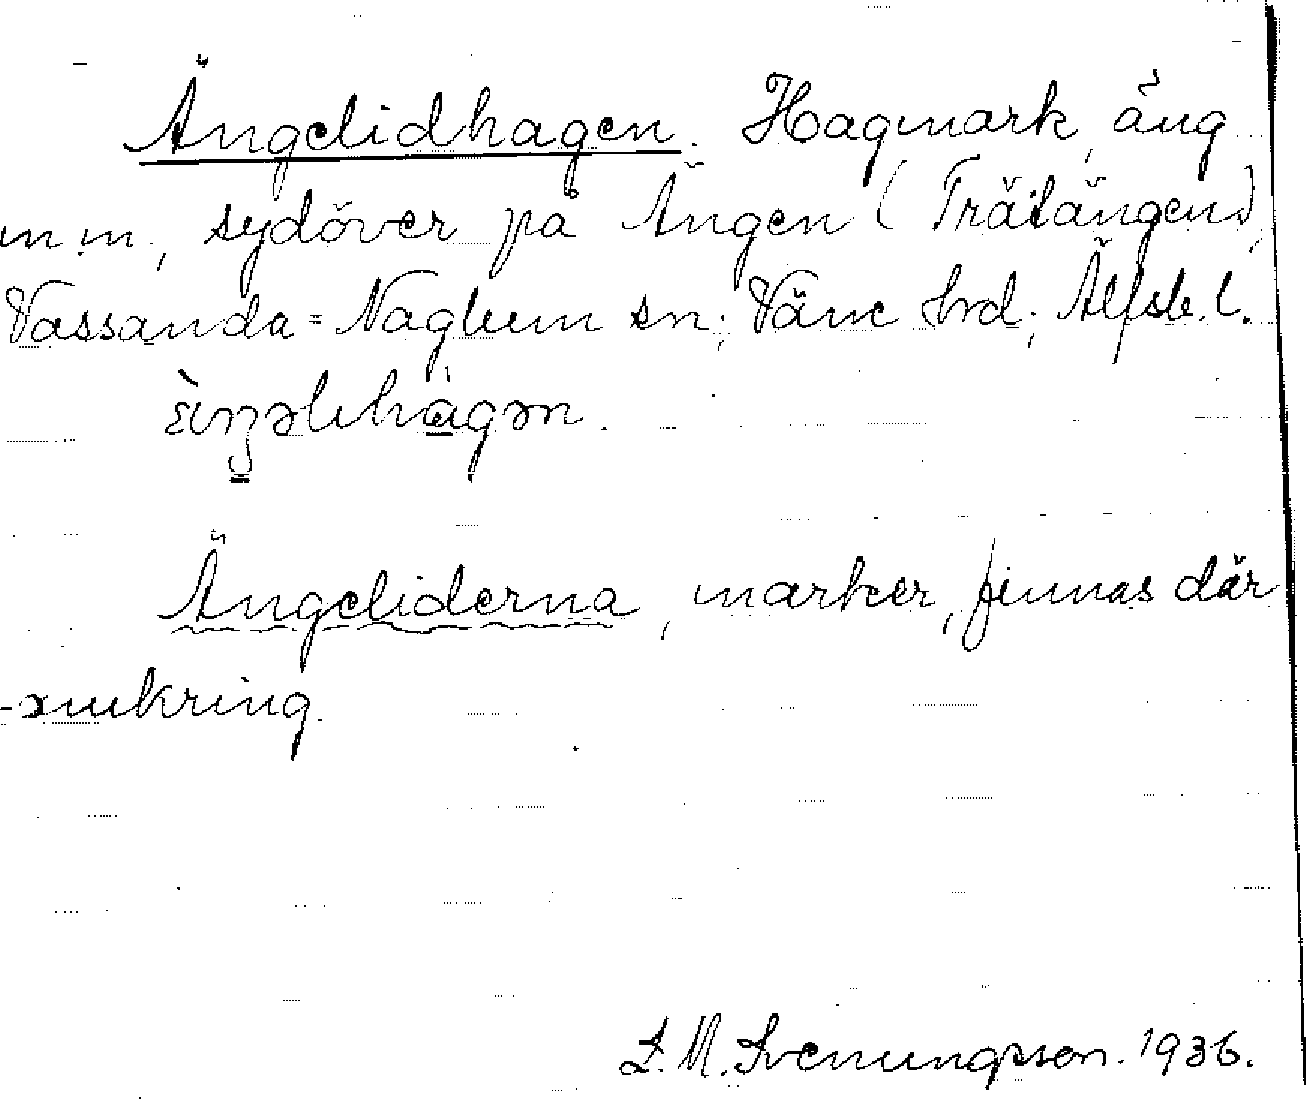 Ängelidhagen. Hagmark, äng
m m, sydöver på Ängen (Trätängen),
Vassanda=Naglum sn; Väne hrd; Älfsb. l.
Ängeliderna, marker, finnas där
omkring.
S. M. Svenungsson. 1936.